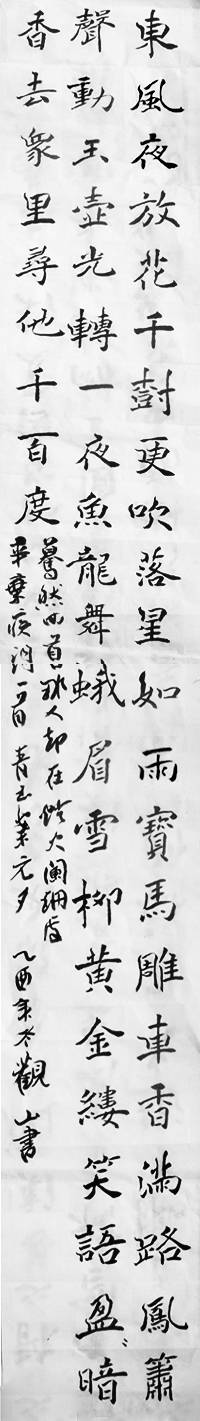 東風夜放花千樹更吹落星如雨寶馬雕車香滿路鳳簫
聲動玉壺光轉一夜魚龍舞蛾眉雪柳黃金縷笑語盈〻暗
香去眾里尋他千百度
驀然回首那人却在燈火闌珊處
辛棄疾詞一首 青玉案元夕 乙酉年冬觀山書